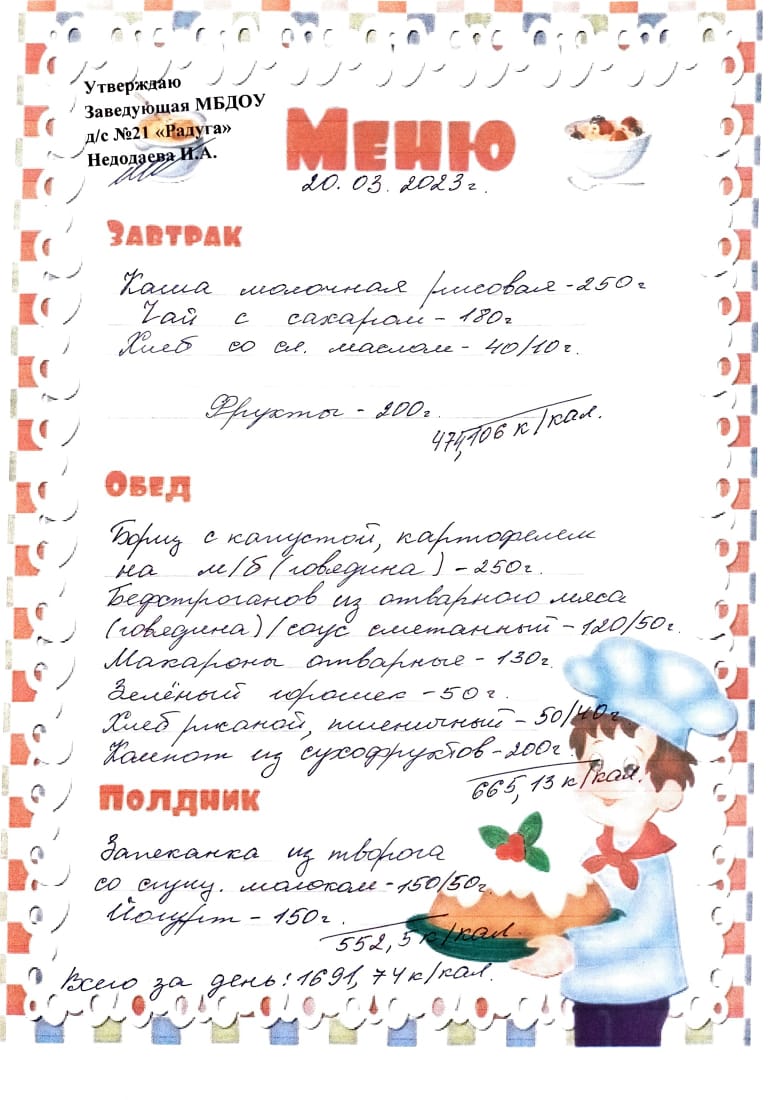 Утверждаю
Заведующая МБДОУ
д/с №21 «Радуга»
Недодаева И.А.
Меню
20.03.2023г.
Завтрак
Каша молочная рисовая - 250г
Чай с сахаром - 180г
Хлеб со сл. маслом - 40/10г.
Фрукты - 200г.
474,106 к/кал.
Обед
Борщ с капустой, картофелем
на м/б (говядина) - 250г.
Бефстроганов из отварного мяса
(говядина)/соус сметанный - 120/50г.
Макароны отварные - 130г.
Зелёный горошек - 50г.
Хлеб ржаной, пшеничный - 50/40г
Компот из сухофруктов - 200г.
665,13 к/кал.
Полдник
Запеканка из творога
со сгущ. молоком - 150/50г.
Йогурт - 150г.
552,5 к/кал.
Всего за день: 1691,74 к/кал.